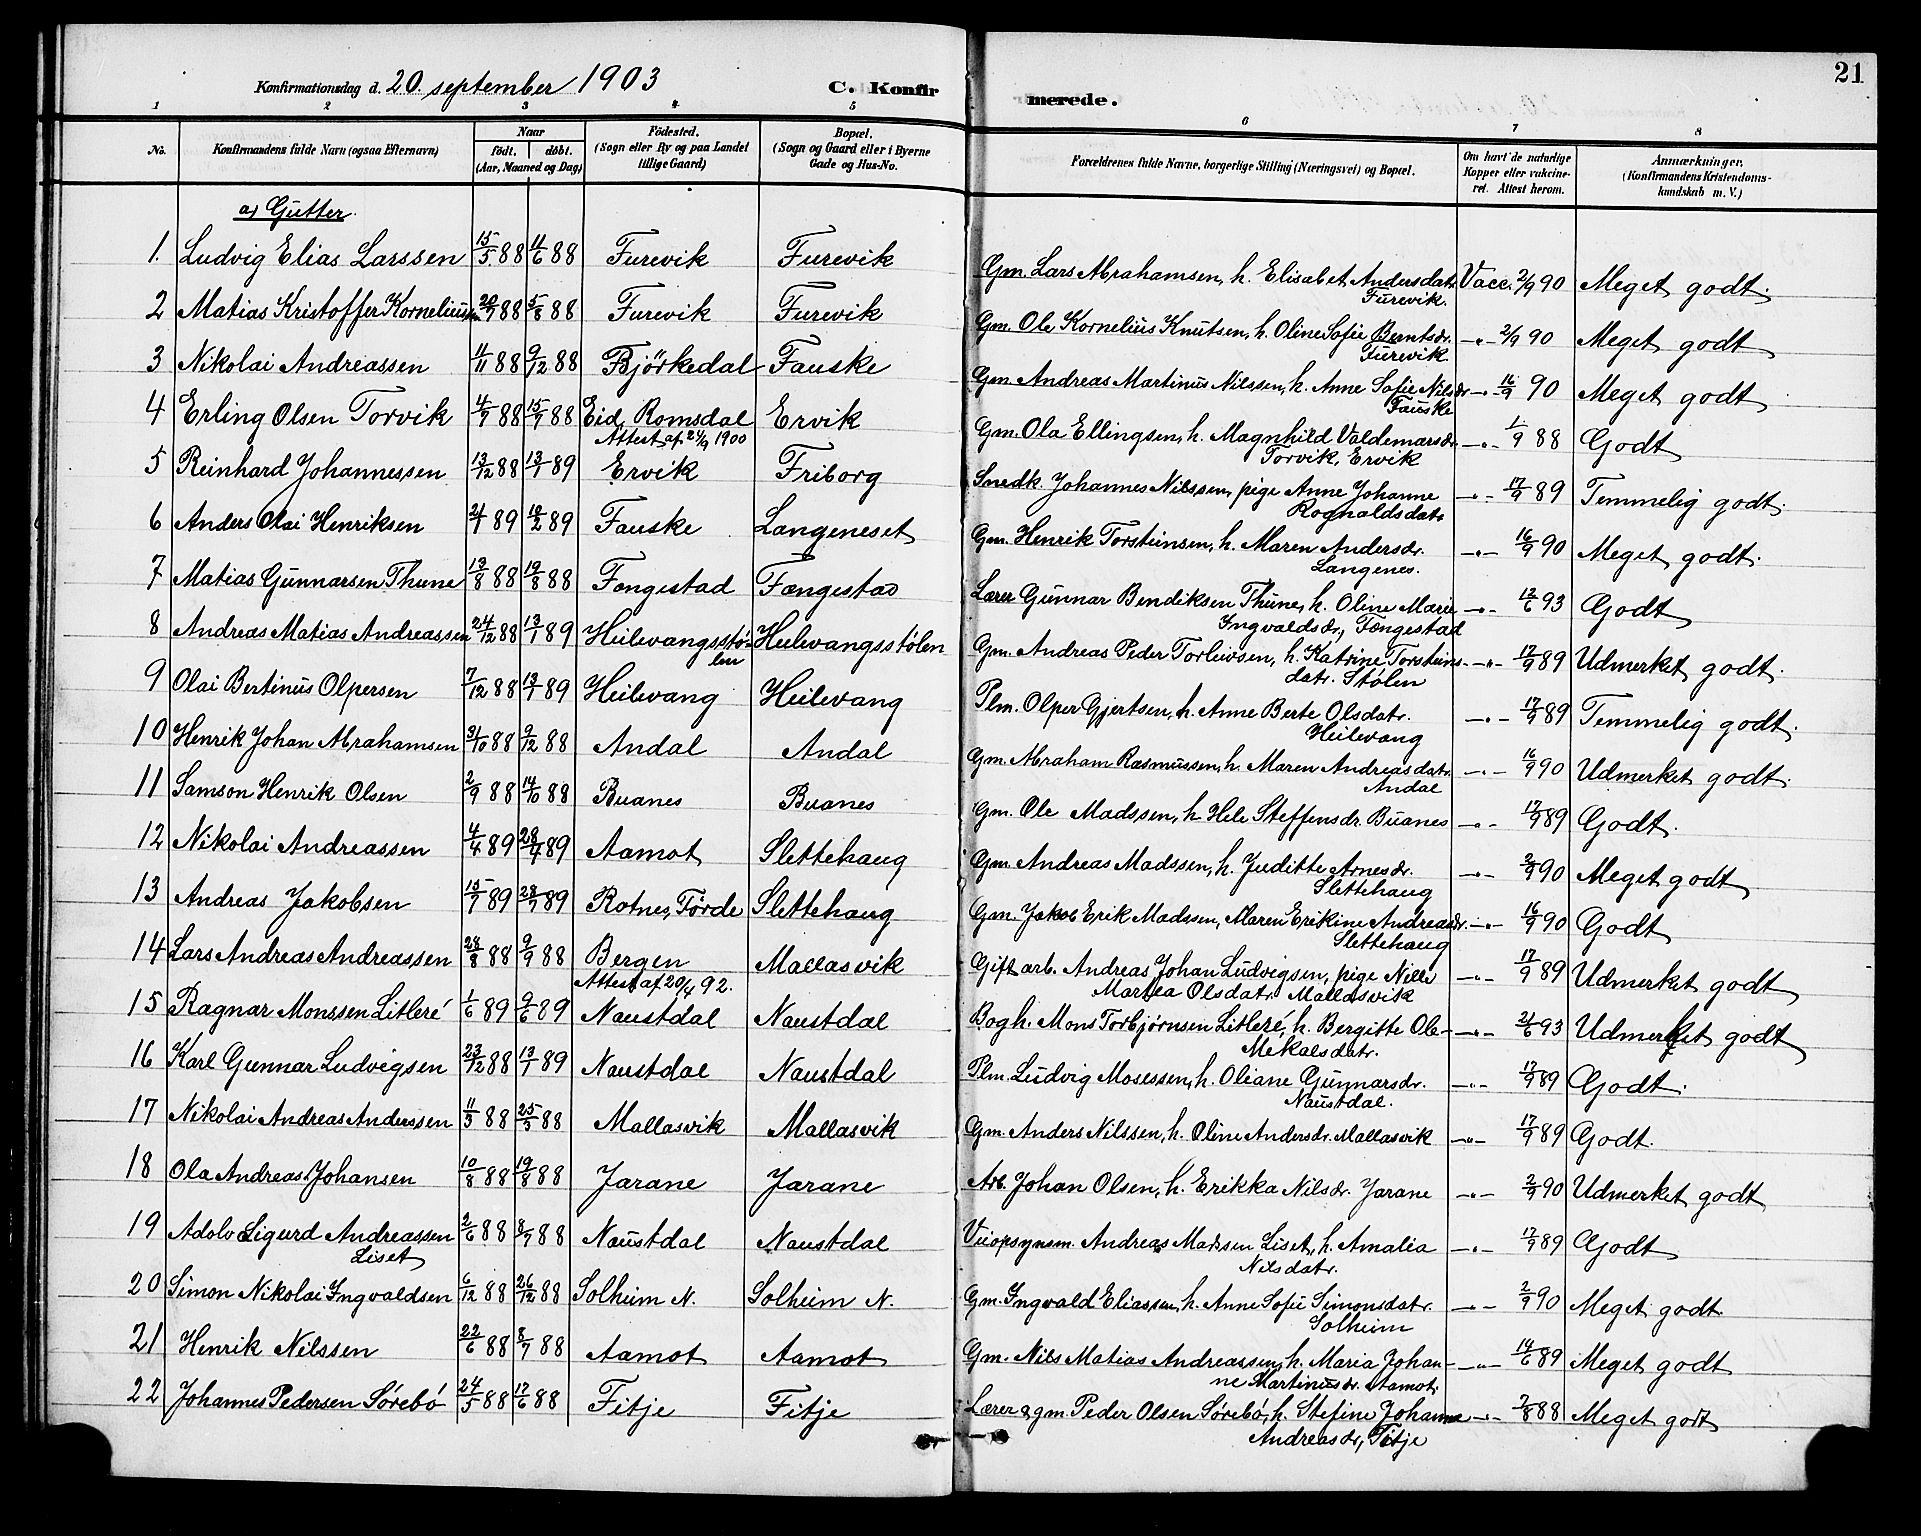 21
Konfirmationsdag d. 20 september 1903 C. Konfirmerede.
1 2 3 4 5 6 7 8
No. Konfirmandens fulde Navn (ogsaa Efternavn) Naar födt. döbt. (Aar, Maaned og Dag) Födested. (Sogn eller By og paa Landet tillige Gaard) Bopæl. (Sogn og Gaard eller i Byerne Gade og Hus-No. Forældrenes fulde Navne, borgerlige Stilling (Næringsvei) og Bopæl. Om havt de naturlige Kopper eller vakcineret. Attest herom. Anmærkninger. (Konfirmandens Kristendomskundskab m. V.)
a) Gutter.
1. Ludvig Elias Larssen 15/5 88 11/6 88 Furevik Furevik Gm. Lars Abrahamsen, h. Elisabet Andersdatr. Vacc. 2/9 90 Meget godt.
Furevik.
2 Matias Kristoffer Korneliussen 20/7 88 5/8 88 Furevik Furevik Gm. Ole Kornelius Knutsen, h. Oline Sofie Berntsdr. -"- 2/9 90 Meget godt
Furevik
3 Nikolai Andreassen 4/11 88 9/12 88 Björkedal Fauske Gm. Andreas Martinus Nilssen, h. Anne Sofie Nilsdr -"- 16/9 90 Meget godt
Fauske
4 Erling Olsen Torvik 4/7 88 15/7 88 Eid, Romsdal Ervik Gm. Ola Ellingsen, h. Magnhild Valdemarsdr. -"- 1/9 88 Godt
Attest af 24/9 1900 Torvik, Ervik
5 Reinhard Johannessen 13/12 88 13/1 89 Ervik Friborg Snedk. Johannes Nilssen, pige Anne Johanne -"- 17/9 89 Temmelig godt.
Rognaldsdatr
6 Anders Olai Henriksen 21/1 89 10/2 89 Fauske Langeneset Gm. Henrik Torsteinsen, h. Maren Andersdr. -"- 16/9 90 Meget godt.
Langenes.
7 Matias Gunnarsen Thune 13/8 88 19/8 88 Fængestad Fængestad Lærer Gunnar Bendiksen Thune, h. Oline Marie -"- 12/6 93 Godt
Ingvaldsdr., Fængestad
8 Andreas Matias Andreassen 24/12 88 13/1 89 Heilevangsstø- Heilevangsstølen Gm. Andreas Peder Torleivsen, h. Katrine Torsteins- -"- 17/9 89 Udmerket godt.
len datr. Stølen
9 Olai Bertinus Olpersen 7/12 88 13/1 89 Heilevang Heilevang Plm. Olper Gjertsen, h. Anne Berte Olsdatr. -"- 17/9 89 Temmelig godt.
Heilevang
10 Henrik Johan Abrahamsen 31/10 88 9/12 88 Andal Andal Gm. Abraham Rasmussen, h. Maren Andreasdatr. -"- 16/9 90 Udmerket godt.
Andal
11 Samson Henrik Olsen 2/9 88 14/10 88 Buanes Buanes Gm. Ole Madssen, h. Hele Steffensdr. Buanes -"- 17/9 89 Godt.
12 Nikolai Andreassen 4/4 89 28/4 89 Aamot Slettehaug Gm. Andreas Madssen, h. Juditte Arnesdr. -"- 2/9 90 Meget godt
Slettehaug
13 Andreas Jakobsen 15/7 89 28/7 89 Rotnes, Förde Slettehaug Gm. Jakob Erik Madssen, Maren Erikine Andreasdr. -"- 16/9 90 Godt
Slettehaug
14 Lars Andreas Andreassen 28/8 88 9/9 88 Bergen Mallasvik Gift arb. Andreas Johan Ludvigsen, pige Nilli -"- 17/9 89 Udmerket godt
Attest af 20/4 92. Martea Olsdatr. Mallasvik
15 Ragnar Monssen Litleré 1/6 89 9/6 89 Naustdal Naustdal Bogh. Mons Torbjørnsen Litleré, h. Bergitte Ole- -"- 21/6 93 Udmerket godt
Mekalsdatr.
16 Karl Gunnar Ludvigsen 23/12 88 13/1 89 Naustdal Naustdal Plm. Ludvig Mosessen, h. Oliane Gunnarsdr. -"- 17/9 89 Godt.
Naustdal.
17 Nikolai Andreas Anderssen 11/3 88 25/3 88 Mallasvik Mallasvik Gm. Anders Nilssen, h. Oline Andersdr. Mallasvik -"- 17/9 89 Godt.
18 Ola Andreas Johansen 10/8 88 19/8 88 Jarane Jarane Arb. Johan Olsen, h. Erikka Nilsdr. Jarane -"- 2/9 90 Udmerket godt
19 Adolv Sigurd Andreassen 2/6 88 8/7 88 Naustdal Naustdal Veiopsynsm. Andreas Madssen Liset, h. Amalia -"- 17/9 89 Godt
Liset Nilsdatr.
20 Simon Nikolai Ingvaldsen 6/12 88 26/12 88 Solheim N. Solheim N. Gm. Ingvald Eliassen, h. Anne Sofie Simonsdatr. -"- 2/9 90 Meget godt.
Solheim
21 Henrik Nilssen 22/6 88 8/7 88 Aamot Aamot Gm. Nils Matias Andreassen, h. Maria Johan- -"- 14/6 89 Meget godt
ne Martinusdr. Aamot.
22 Johannes Pedersen Sørebö 24/5 88 17/6 88 Fitje Fitje Lærer & gm. Peder Olsen Sørebö, h. Stefine Johanne -"- 7/8 88 Meget godt
Andreasdr, Fitje